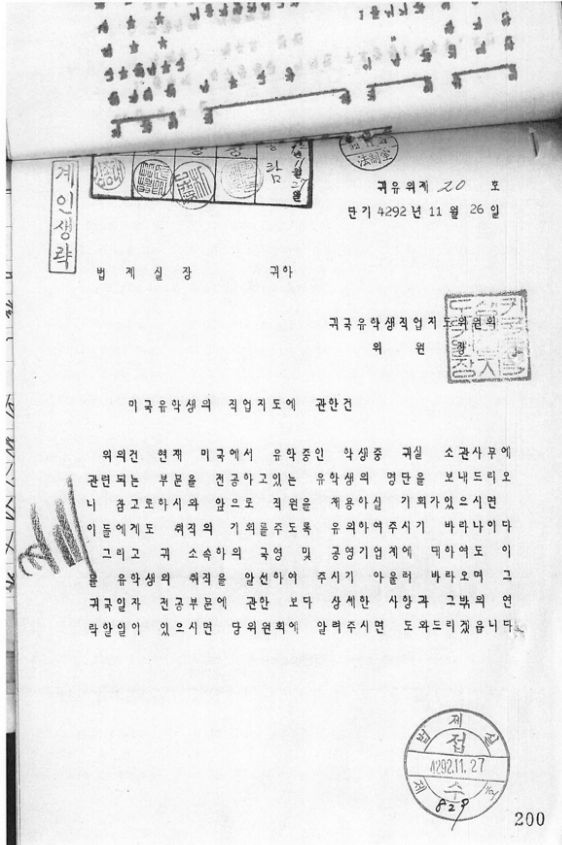 계인생략
공람
귀유위제 20 호
단기 4292 년 11 월 26 일
법 제 실 장 귀하
귀국유학생직업지도위원회
위 원 장
미국유학생의 직업지도에 관한건
위의건 현재 미국에서 유학중인 학생중 귀실 소관사무에
관련되는 부문을 전공하고있는 유학생의 명단을 보내드리오
니 참고로하시와 앞으로 직원을 채용하실 기회가있으시면
이들에게도 취직의 기회를주도록 유의하여주시기 바라나이다
그리고 귀 소속하의 국영 및 공영기업체에 대하여도 이
들 유학생의 취직을 알선하여 주시기 아울러 바라오며 그
귀국일자 전공부문에 관한 보다 상세한 사항과 그밖의 연
락할일이 있으시면 당위원회에 알려주시면 도와드리겠읍니다
법 제 실
접
4292.11.27
수
제 호
829
200